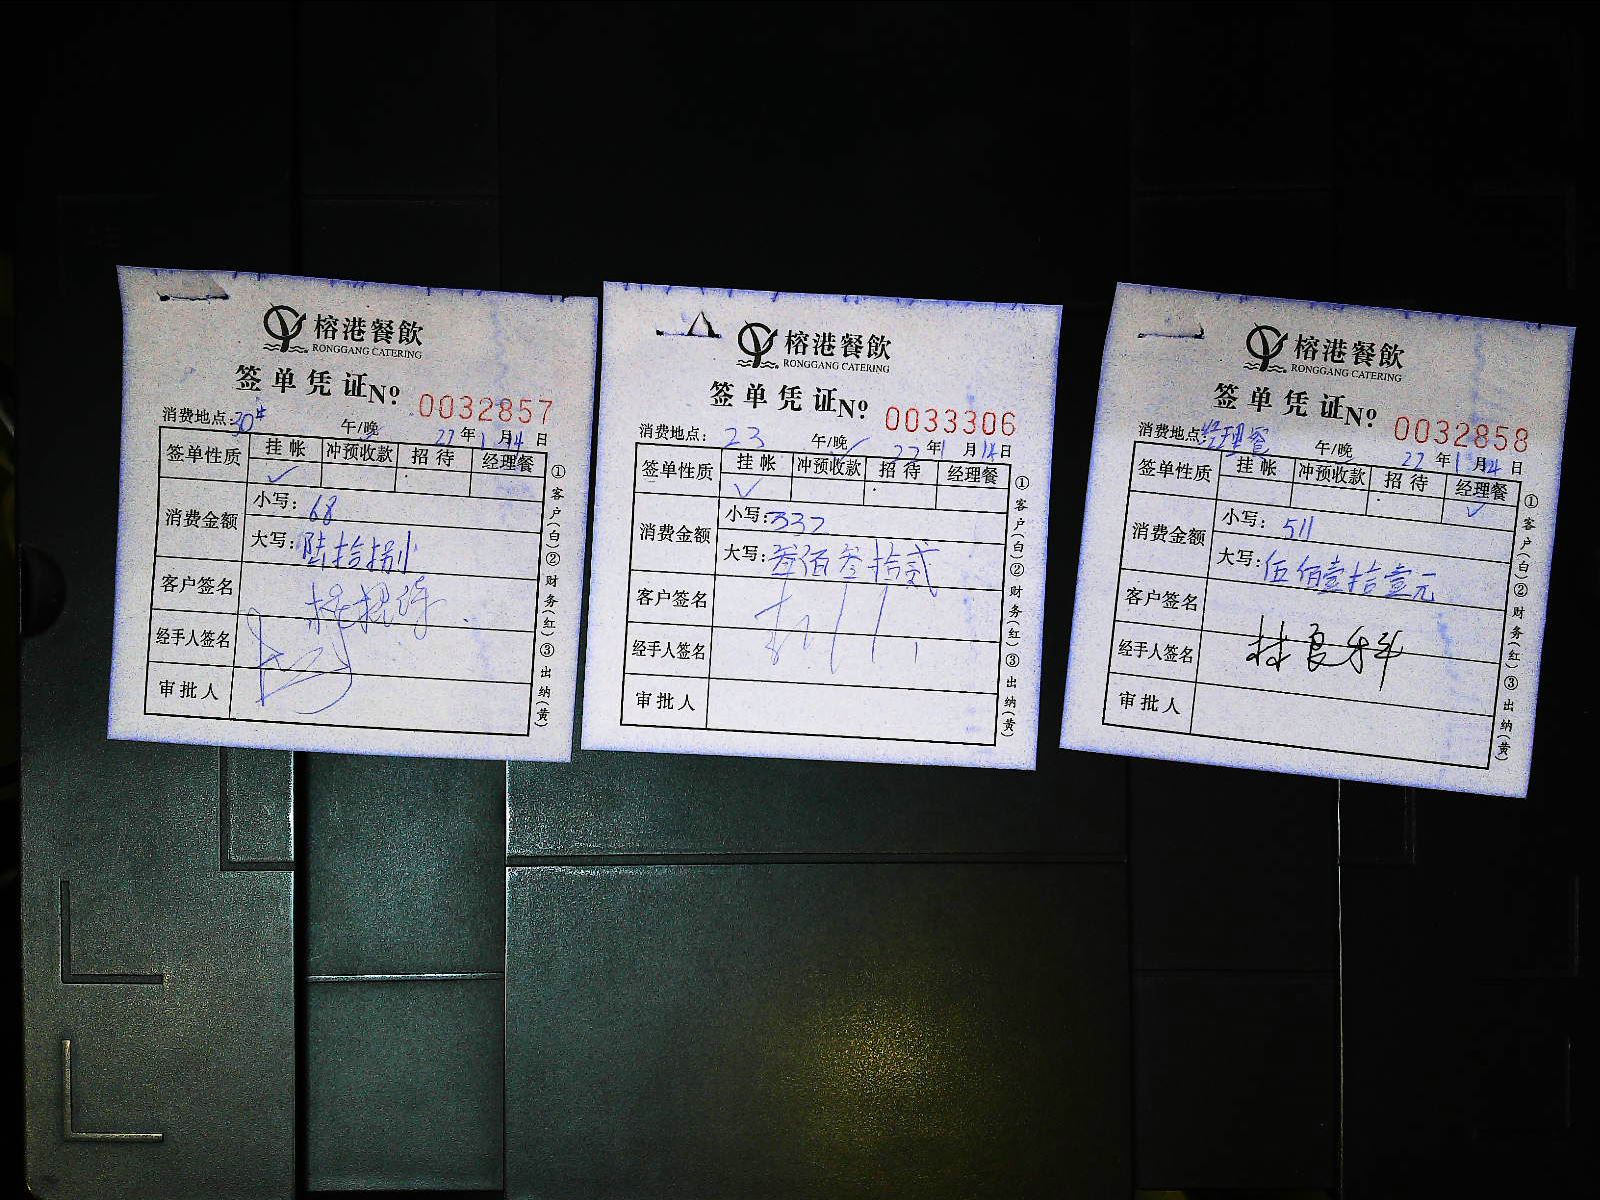 榕港餐飲
RONGGANG CATERING
签单凭证№ 0032857
消费地点:30# 午/晚 22年1月14日
签单性质 挂帐 冲预收款 招待 经理餐
✓
消费金额 小写:68
大写:陆拾捌
客户签名
经手人签名
审批人
①客户(白)②财务(红)③出纳(黄)
榕港餐飲
RONGGANG CATERING
签单凭证№ 0033306
消费地点:23 午/晚✓ 22年1月14日
签单性质 挂帐 冲预收款 招待 经理餐
✓
消费金额 小写:332
大写:叁佰叁拾贰
客户签名
经手人签名
审批人
①客户(白)②财务(红)③出纳(黄)
榕港餐飲
RONGGANG CATERING
签单凭证№ 0032858
消费地点:经理餐 午/晚 22年1月14日
签单性质 挂帐 冲预收款 招待 经理餐
✓
消费金额 小写:511
大写:伍佰壹拾壹元
客户签名
经手人签名 林良科
审批人
①客户(白)②财务(红)③出纳(黄)